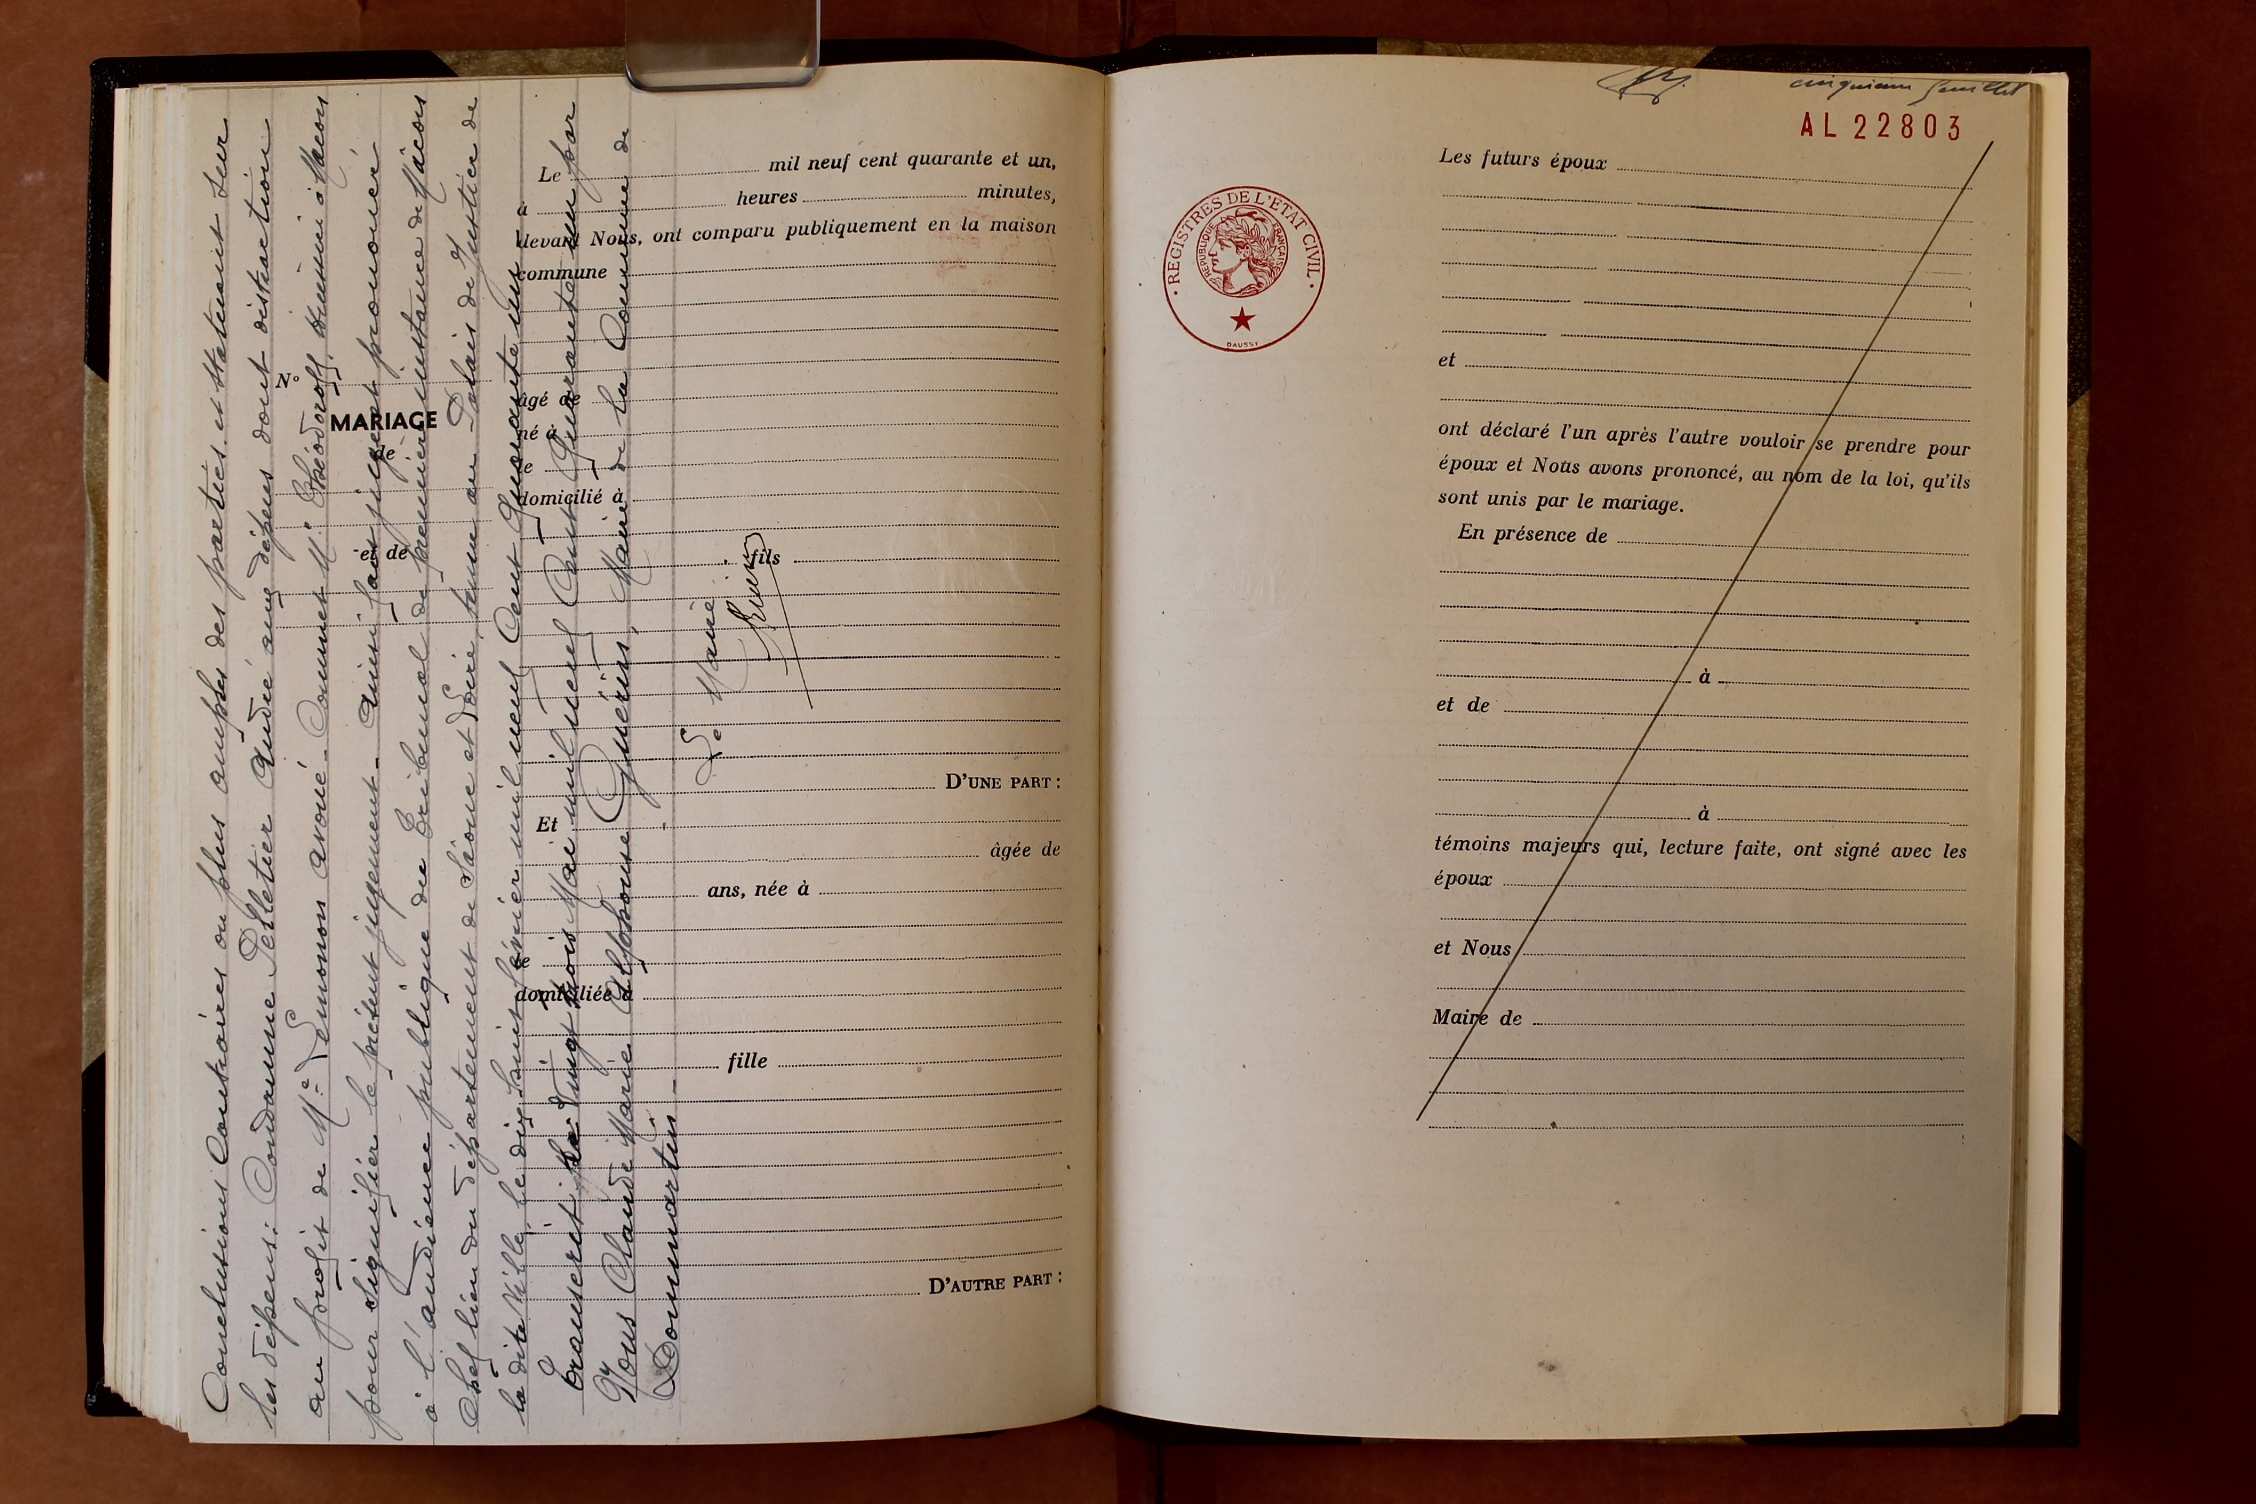 Conclusions Contraires ou plus amples des parties. et Statuant sur
les dépens: Condamne Pelletier André aux dépens dont distraction
au profit de Me Lemonon avoué. Commet Me Théodoroff, huissier à Macon
pour signifier le présent jugement. Ainsi fait jugé et prononcé
à l'audience publique du Tribunal de première instance de Mâcon
Chef lieu du département de Saône et Loire, tenue au Palais de Justice de
la dite Ville, le dix huit Février mil neuf Cent Quarante un -
Transcrit le Vingt trois Mai mil neuf Cent Quarante un par
Nous Claude Marie Alphonse Guérin, Maire de la Commune de
Dommartin -
Le Maire
Guérin
N°
MARIAGE
de
et de
Le mil neuf cent quarante et un,
à heures minutes,
devant Nous, ont comparu publiquement en la maison
commune
âgé de
né à
le
domicilié à
fils
D'UNE PART :
Et
âgée de
ans, née à
le
domiciliée à
fille
D'AUTRE PART :
cinquième feuillet
AL 22803
REGISTRES DE L'ÉTAT CIVIL
RÉPUBLIQUE FRANÇAISE
DAUSSY
Les futurs époux
et
ont déclaré l'un après l'autre vouloir se prendre pour
époux et Nous avons prononcé, au nom de la loi, qu'ils
sont unis par le mariage.
En présence de
à
et de
à
témoins majeurs qui, lecture faite, ont signé avec les
époux
et Nous
Maire de